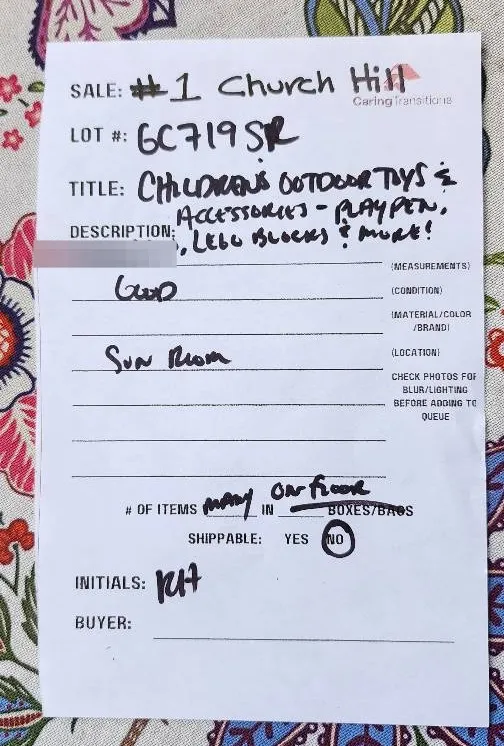 SALE: #1 Church Hill
Caring Transitions
LOT #: GC719SR
TITLE: CHILDREN'S OUTDOOR TOYS &
ACCESSORIES - PLAYPEN,
DESCRIPTION: , LEGO BLOCKS & MORE!
(MEASUREMENTS)
GOOD (CONDITION)
(MATERIAL/COLOR
/BRAND)
SUN ROOM (LOCATION)
CHECK PHOTOS FOR
BLUR/LIGHTING
BEFORE ADDING TO
QUEUE
# OF ITEMS MANY IN ON FLOOR BOXES/BAGS
SHIPPABLE: YES NO
INITIALS: RH
BUYER: